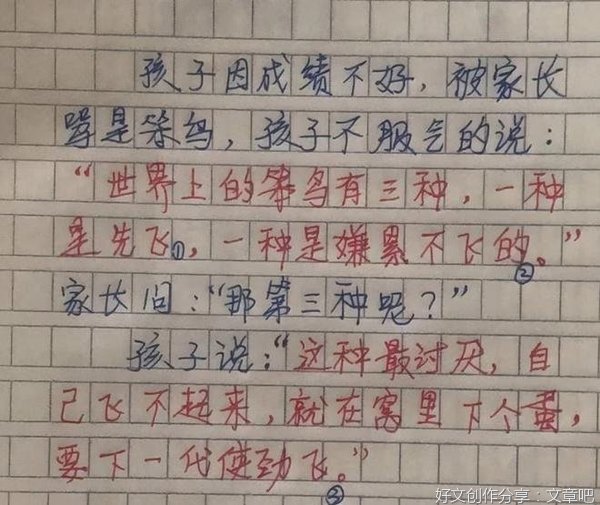 孩子因成绩不好，被家长
骂是笨鸟，孩子不服气的说：
“世界上的笨鸟有三种，一种
是先飞①，一种是嫌累不飞的。”②
家长问：“那第三种呢？”
孩子说：“这种最讨厌，自
己飞不起来，就在窝里下个蛋，
要下一代使劲飞。”③
好文创作分享：文章吧